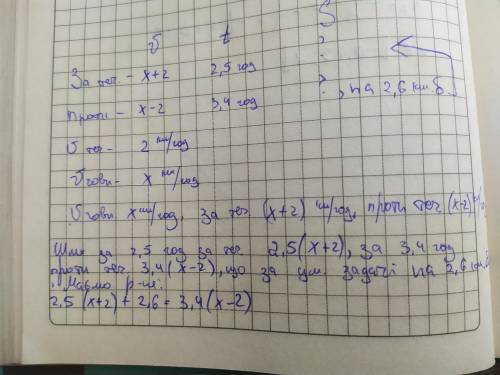 v t S
За теч. - x+2 2,5 год ?
Проти - x-2 3,4 год ?, на 2,6 км б.
v теч - 2 км/год
v човн - x км/год
v човн x км/год, за теч (x+2) км/год, проти теч (x-2) км/го
Шлях за 2,5 год за теч. 2,5(x+2), за 3,4 год
проти теч. 3,4(x-2), що за ум. задачі на 2,6 км б.
Маємо р-ня:
2,5(x+2)+2,6=3,4(x-2)